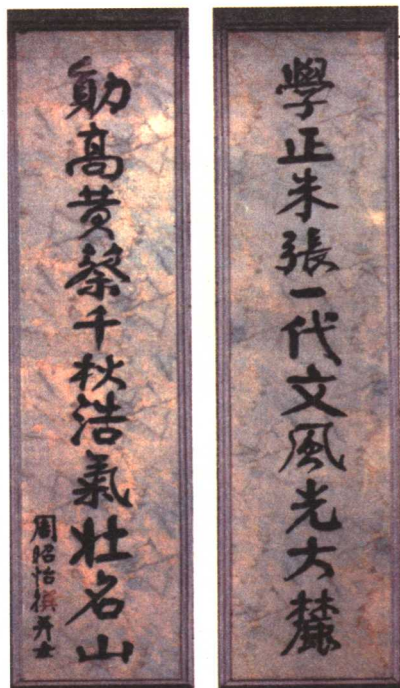 學正朱張一代文風光大麓
勛高黄蔡千秋浩氣壯名山
周昭怡撰并書